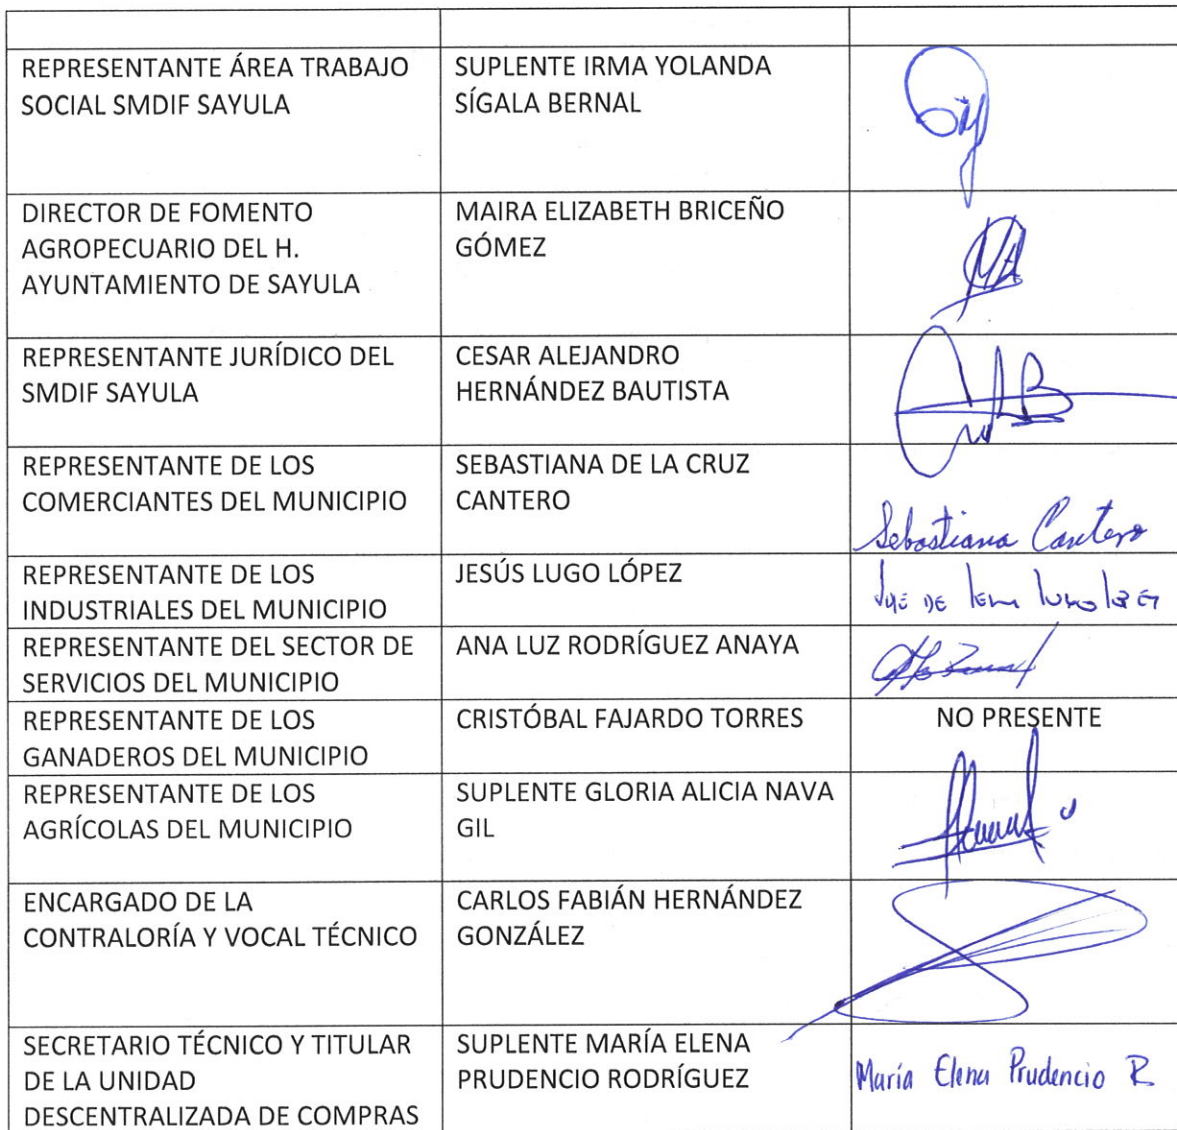 REPRESENTANTE ÁREA TRABAJO
SOCIAL SMDIF SAYULA
SUPLENTE IRMA YOLANDA
SÍGALA BERNAL
DIRECTOR DE FOMENTO
AGROPECUARIO DEL H.
AYUNTAMIENTO DE SAYULA
MAIRA ELIZABETH BRICEÑO
GÓMEZ
REPRESENTANTE JURÍDICO DEL
SMDIF SAYULA
CESAR ALEJANDRO
HERNÁNDEZ BAUTISTA
REPRESENTANTE DE LOS
COMERCIANTES DEL MUNICIPIO
SEBASTIANA DE LA CRUZ
CANTERO
Sebastiana Cantero
REPRESENTANTE DE LOS
INDUSTRIALES DEL MUNICIPIO
JESÚS LUGO LÓPEZ
REPRESENTANTE DEL SECTOR DE
SERVICIOS DEL MUNICIPIO
ANA LUZ RODRÍGUEZ ANAYA
REPRESENTANTE DE LOS
GANADEROS DEL MUNICIPIO
CRISTÓBAL FAJARDO TORRES
NO PRESENTE
REPRESENTANTE DE LOS
AGRÍCOLAS DEL MUNICIPIO
SUPLENTE GLORIA ALICIA NAVA
GIL
ENCARGADO DE LA
CONTRALORÍA Y VOCAL TÉCNICO
CARLOS FABIÁN HERNÁNDEZ
GONZÁLEZ
SECRETARIO TÉCNICO Y TITULAR
DE LA UNIDAD
DESCENTRALIZADA DE COMPRAS
SUPLENTE MARÍA ELENA
PRUDENCIO RODRÍGUEZ
María Elena Prudencio R